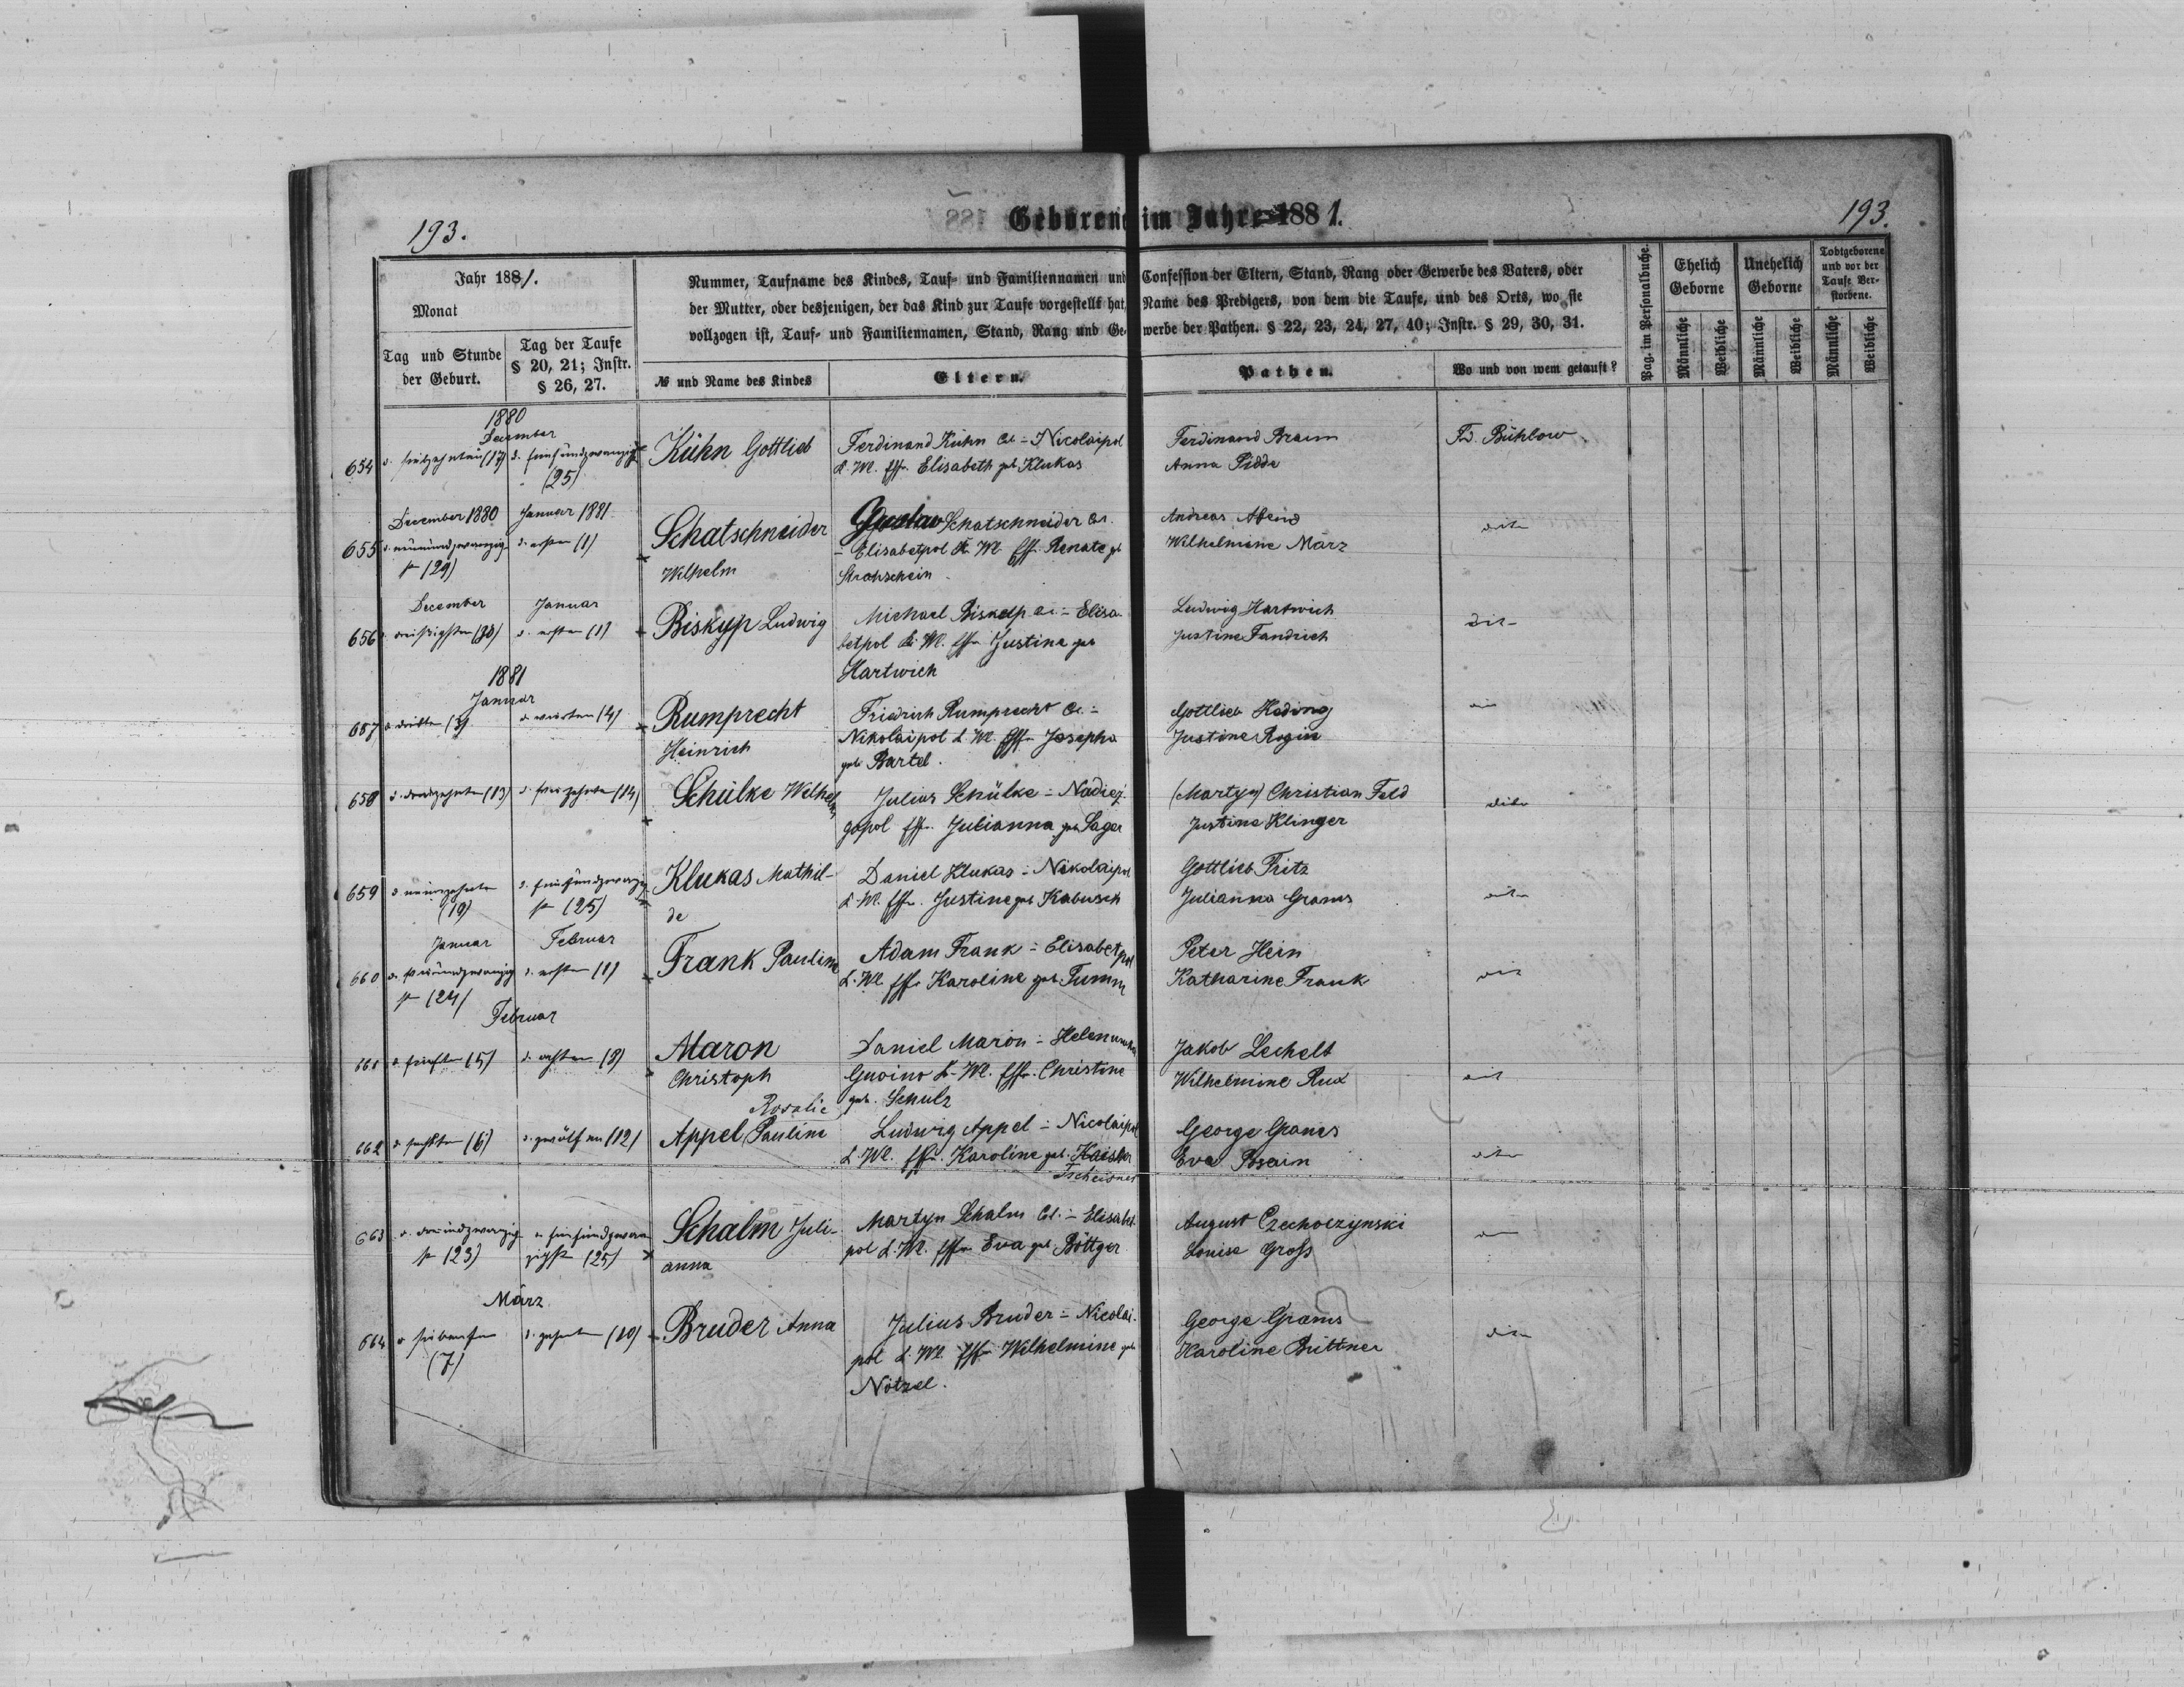 193.
Geborene im Jahre 1881.
193.
Jahr 1881.
Monat
Tag und Stunde der Geburt.
Tag der Taufe § 20, 21; Instr. § 26, 27.
Nummer, Taufname des Kindes, Tauf- und Familiennamen und Confession der Eltern, Stand, Rang oder Gewerbe des Vaters, oder
der Mutter, oder desjenigen, der das Kind zur Taufe vorgestellt hat, Name des Predigers, von dem die Taufe, und des Orts, wo sie
vollzogen ist, Tauf- und Familiennamen, Stand, Rang und Gewerbe der Pathen. § 22, 23, 24, 27, 40; Instr. § 29, 30, 31.
№ und Name des Kindes
Eltern.
Pathen.
Wo und von wem getauft?
Pag. im Personalbuche.
Ehelich Geborne
Unehelich Geborne
Todtgeborene und vor der Taufe Verstorbene.
Männliche
Weibliche
Männliche
Weibliche
Männliche
Weibliche
1880
December
654 d. siebzehnten (17) d. fünfundzwanzig (25)
Kühn Gottlieb
Ferdinand Kühn Col. = Nicolaipol
L. Wl. Ehfr. Elisabeth geb Klukas
Ferdinand Braun
Anna Pidde
Fd. Bühlow
December 1880 Januar 1881
655 d. neunundzwanzigste (29) d. ersten (1)
Schatschneider
Wilhelm
Gustav Schatschneider Col.
= Elisabetpol K. Wl. Ehfr. Renate gb
Strohschein
Andreas Abend
Wilhelmine März
dito
December Januar
656 d. dreißigsten (30) d. ersten (1)
Biskyp Ludwig
Michael Biskup Col. = Elisa-
betpol K. Wl. Ehfr. Justina geb
Hartwich
Ludwig Hartwich
Justine Fandrich
dit
1881
Januar
657 d. dritten (3) d. vierten (4)
Rumprecht
Heinrich
Friedrich Rumprecht Col. =
Nikolaipol L. Wl. Ehfr. Josepha
geb Bartel.
Gottlieb Heding
Justine Rogin
658 d. dreizehnten (13) d. vierzehnten (14)
Schülke Wilhelm
Julius Schülke = Nadiej-
gopol Ehfr. Julianna geb Sager
(Martyn) Christian Feld
Justine Klinger
dito
659 d. neunzehnten (19) d. fünfundzwanzigste (25)
Klukas Mathil-
de
Daniel Klukas = Nikolaipol
L. Wl. Ehfr. Justine geb Kabusch
Gottlieb Fritz
Julianna Grams
dito
Januar Februar
660 d. vierundzwanzigste (24) d. ersten (1)
Frank Pauline
Adam Frank = Elisabetpol
L. Wl. Ehfr. Karoline geb. Tumm
Peter Hein
Katharine Frank
dit
Februar
661 d. fünften (5)
Maron
Christoph
Daniel Maron = Helenuwka
Gnoino L. Wl. Ehfr. Christine
geb. Schulz
Jakob Lechelt
Wilhelmine Rux
dit
662 d. sechsten (6) d. zwölften (12)
Rosalie
Appel Pauline
Ludwig Appel = Nicolaipol
L. Wl. Ehfr. Karoline geb. Kaiser
Tscheisner
George Grams
Eva Braun
dito
663 d. dreiundzwanzigste (23) d. fünfundzwanzigste (25)
Schalm Juli-
anna
Martyn Schalm Col. = Elisabet-
pol L. Wl. Ehfr. Eva geb Böttger
August Czechoczynski
Louise Groß
März
664 d. siebenten (7) d. zehnten (10)
Bruder Anna
Julius Bruder = Nicolai-
pol L. Wl. Ehfr. Wilhelmine geb
Nötzel.
George Grams
Karoline Brittner
dito